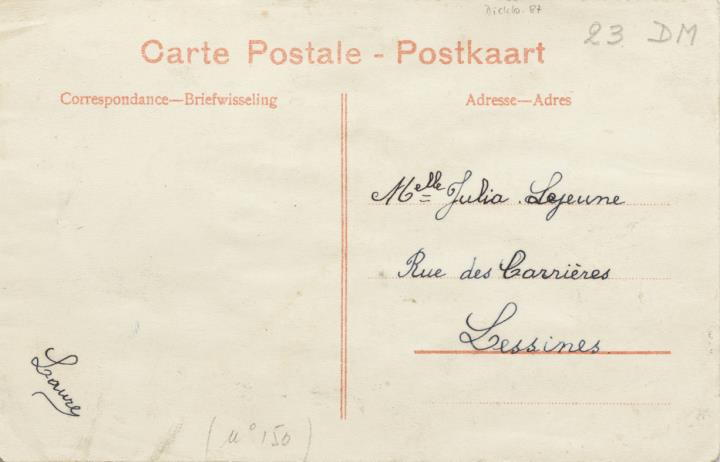 23 DM
Carte Postale - Postkaart
Correspondance—Briefwisseling
Adresse—Adres
Melle Julia Lejeune
Rue des Carrières
Lessines
Laure
(N° 150)